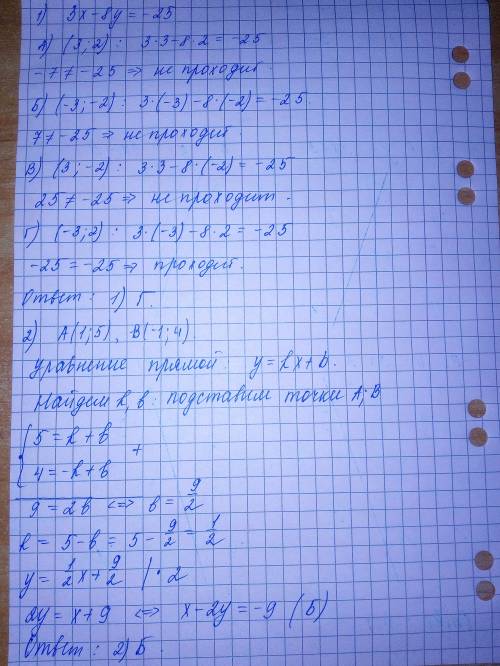 1) 3x-8y=-25
А) (3;2) : 3·3-8·2=-25
-7≠-25 => не проходит
Б) (-3;-2) : 3·(-3)-8·(-2)=-25.
7≠-25 => не проходит.
В) (3;-2) : 3·3-8·(-2)=-25
25≠-25 => не проходит.
Г) (-3;2) : 3·(-3)-8·2=-25
-25=-25 => проходит.
Ответ: 1) Г.
2) А(1;5), В(-1;4)
Уравнение прямой: y=kx+b.
Найдем k, b: подставим точки А;В
{ 5=k+b
4=-k+b +
9=2b <=> b=9/2
k=5-b=5-9/2=1/2
y=1/2x+9/2 |·2
2y=x+9 <=> x-2y=-9 (Б)
Ответ: 2) Б.